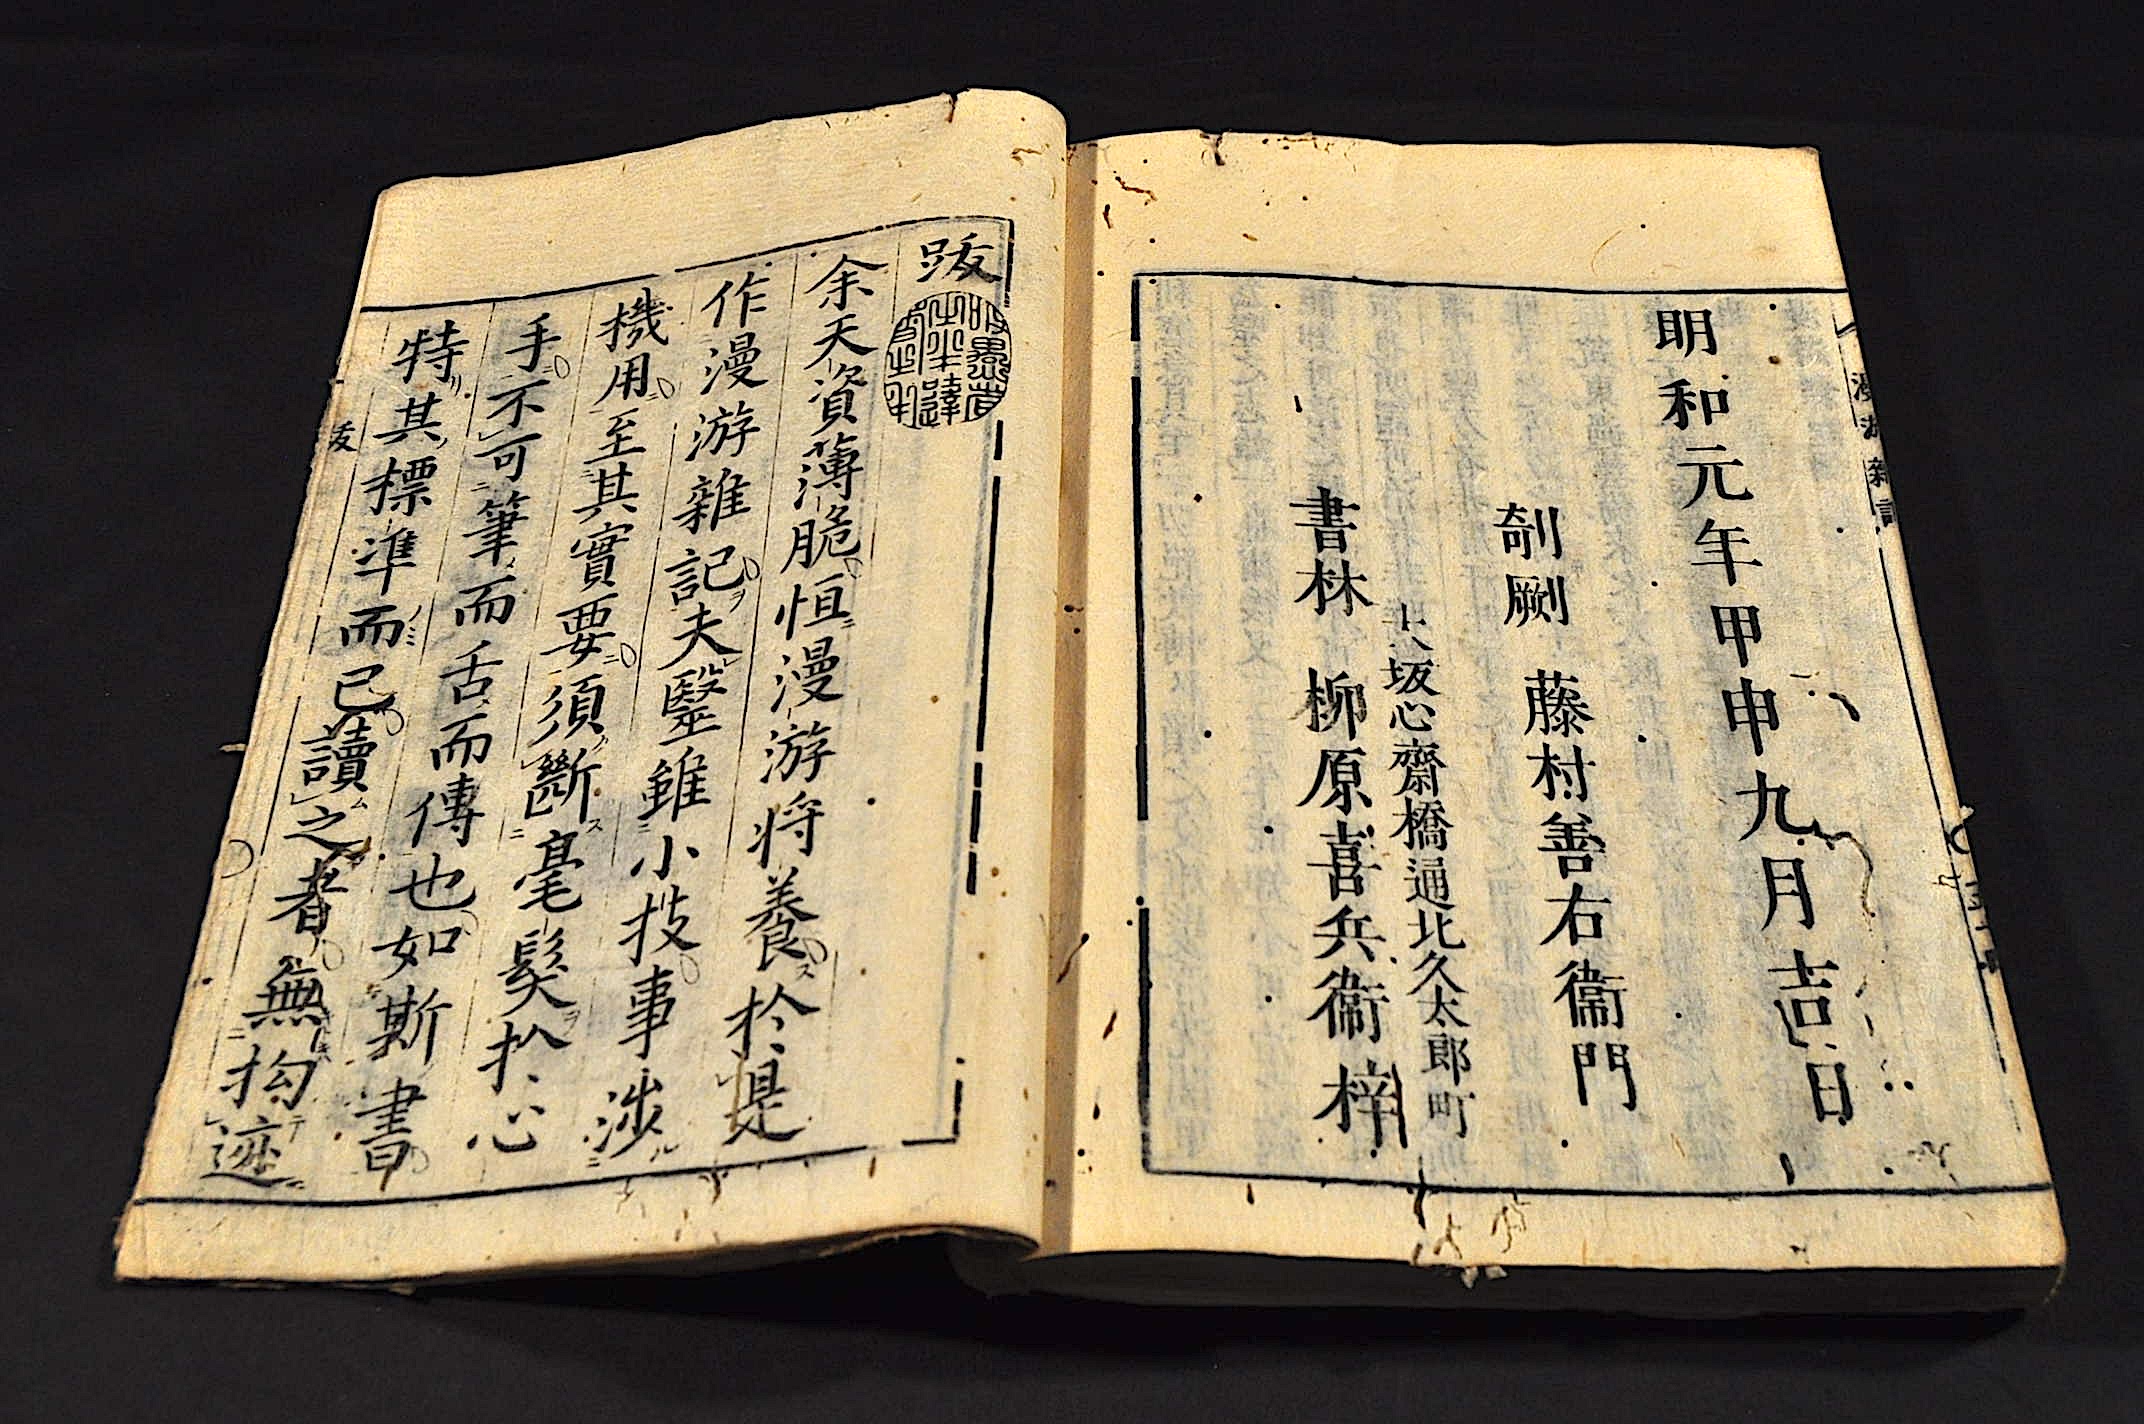 明和元年甲申九月吉日
剞劂 藤村善右衞門
大坂心齋橋通北久太郎町
書林 柳原喜兵衞梓
跋
余天資薄脆恒漫游将養於是
作漫游雜記夫毉雖小技事渉
機用至其實要須斷毫髪於心
手不可筆而舌而傳也如斯書
特其標準而已讀之者無拘迹
漫游雜記
跋